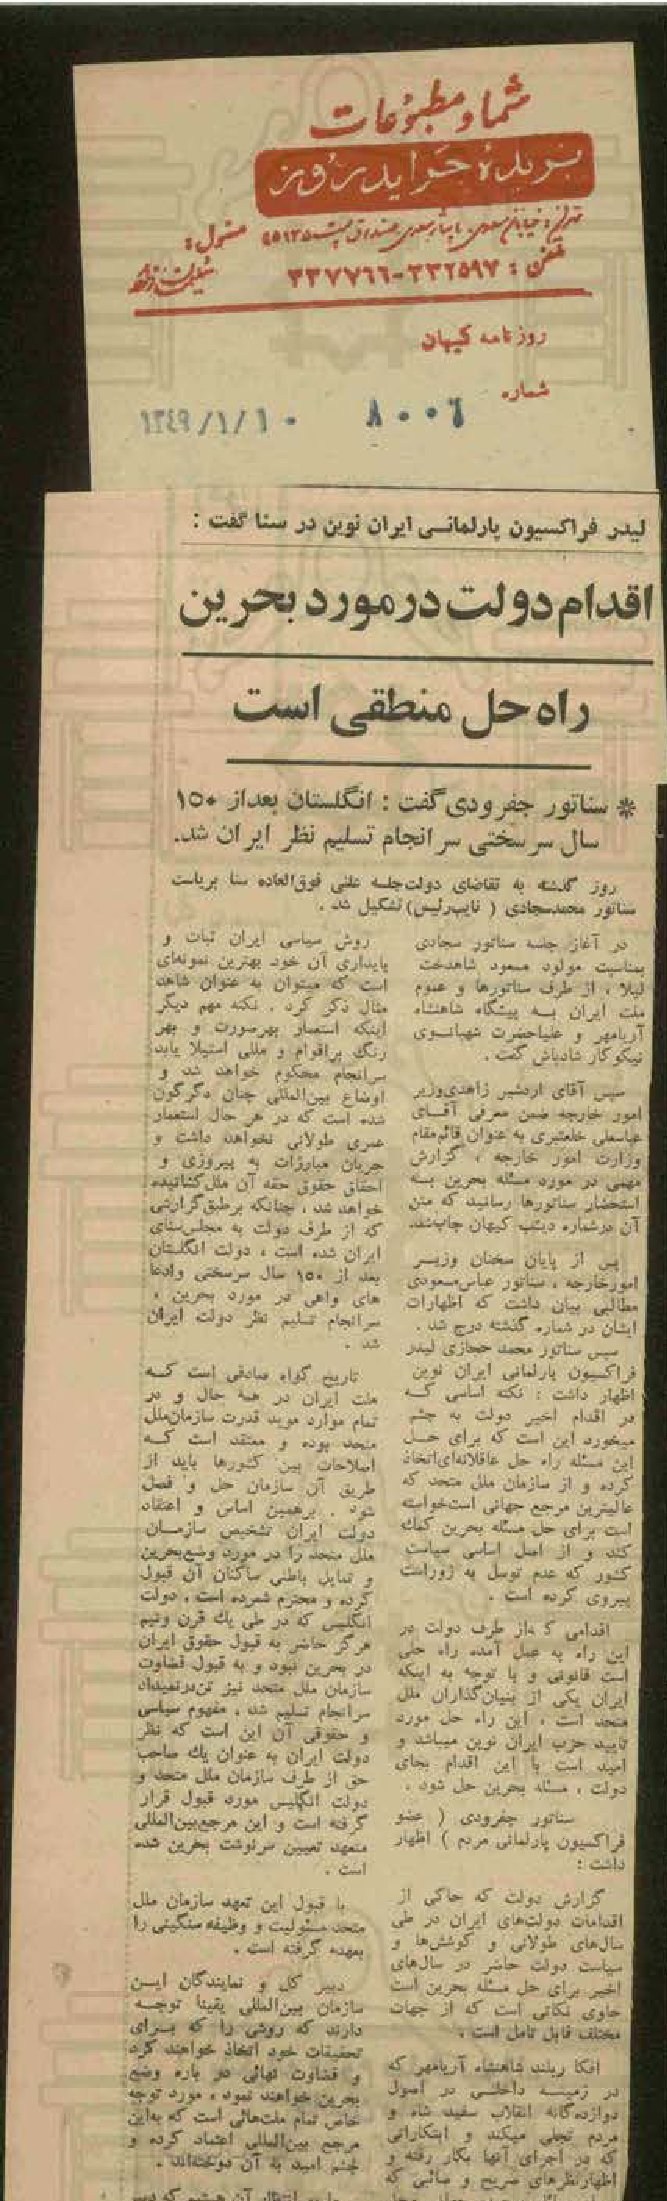 شما و مطبوعات
بریده جراید روز
تلفن : ۳۳۲۵۹۷-۳۳۷۷۶۶
روزنامه کیهان
شماره
۸۰۰۶
۱۳۴۹/۱/۱۰
لیدر فراکسیون پارلمانی ایران نوین در سنا گفت :
اقدام دولت در مورد بحرین
راه حل منطقی است
* سناتور جفرودی گفت : انگلستان بعداز ۱۵۰
سال سرسختی سرانجام تسلیم نظر ایران شد.
روز گذشته به تقاضای دولت جلسه علنی فوق‌العاده سنا بریاست
سناتور محمدسجادی ( نایب‌رئیس) تشکیل شد .
در آغاز جلسه سناتور سجادی
بمناسبت مولود مسعود شاهدخت
لیلا ، از طرف سناتورها و عموم
ملت ایران به پیشگاه شاهنشاه
آریامهر و علیاحضرت شهبانوی
نیکوکار شادباش گفت .
سپس آقای اردشیر زاهدی‌وزیر
امور خارجه ضمن معرفی آقای
عباسعلی خلعتبری به عنوان قائم‌مقام
وزارت امور خارجه ، گزارش
مهمی در مورد مسئله بحرین به
استحضار سناتورها رسانید که متن
آن درشماره دیشب کیهان چاپ‌شد.
پس از پایان سخنان وزیر
امورخارجه ، سناتور عباس‌مسعودی
مطالبی بیان داشت که اظهارات
ایشان در شماره گذشته درج شد .
سپس سناتور محمد حجازی لیدر
فراکسیون پارلمانی ایران نوین
اظهار داشت : نکته اساسی که
در اقدام اخیر دولت به چشم
میخورد این است که برای حل
این مسئله راه حل عاقلانه‌ای‌اتخاذ
کرده و از سازمان ملل متحد که
عالیترین مرجع جهانی است‌خواسته
است برای حل مسئله بحرین کمک
کند و از اصل اساسی سیاست
کشور که عدم توسل به زوراست
پیروی کرده است .
اقدامی که‌از طرف دولت در
این راه به عمل آمده راه حلی
است قانونی و با توجه به اینکه
ایران یکی از بنیان‌گذاران ملل
متحد است ، این راه حل مورد
تایید حزب ایران نوین میباشد و
امید است با این اقدام بجای
دولت ، مسئله بحرین حل شود .
سناتور جفرودی ( عضو
فراکسیون پارلمانی مردم ) اظهار
داشت :
گزارش دولت که حاکی از
اقدامات دولت‌های ایران در طی
سال‌های طولانی و کوشش‌ها و
سیاست دولت حاضر در سال‌های
اخیر برای حل مسئله بحرین است
حاوی نکاتی است که از جهات
مختلف قابل تامل است .
افکار بلند شاهنشاه آریامهر که
در زمینه داخلی در اصول
دوازده‌گانه انقلاب سفید شاه و
مردم تجلی میکند و ابتکاراتی
که در اجرای آنها بکار رفته و
اظهارنظرهای صریح و صائبی که
روش سیاسی ایران ثبات و
پایداری آن خود بهترین نمونه‌ای
است که میتوان به عنوان شاهد
مثال ذکر کرد . نکته مهم دیگر
اینکه استعمار بهرصورت و بهر
رنگ براقوام و مللی استیلا یابد
سرانجام محکوم خواهد شد و
اوضاع بین‌المللی چنان دگرگون
شده است که در هر حال استعمار
عمری طولانی نخواهد داشت و
جریان مبارزات به پیروزی و
احقاق حقوق حقه آن ملل‌کشانیده
خواهد شد ، چنانکه برطبق‌گزارشی
که از طرف دولت به مجلس‌سنای
ایران شده است ، دولت انگلستان
بعد از ۱۵۰ سال سرسختی وادعا
های واهی در مورد بحرین ،
سرانجام تسلیم نظر دولت ایران
شد .
تاریخ گواه صادقی است که
ملت ایران در همه حال و در
تمام موارد موید قدرت سازمان‌ملل
متحد بوده و معتقد است که
اصلاحات بین کشورها باید از
طریق آن سازمان حل و فصل
شود . برهمین اساس و اعتقاد
دولت ایران تشخیص سازمان
ملل متحد را در مورد وضع‌بحرین
و تمایل باطنی ساکنان آن قبول
کرده و محترم شمرده است . دولت
انگلیس که در طی یک قرن ونیم
هرگز حاضر به قبول حقوق ایران
در بحرین نبود و به قبول قضاوت
سازمان ملل متحد نیز تن‌درنمیداد
سرانجام تسلیم شد . مفهوم سیاسی
و حقوقی آن این است که نظر
دولت ایران به عنوان یک صاحب
حق از طرف سازمان ملل متحد و
دولت انگلیس مورد قبول قرار
گرفته است و این مرجع‌بین‌المللی
متعهد تعیین سرنوشت بحرین شده
است .
با قبول این تعهد سازمان ملل
متحد مسئولیت و وظیفه سنگینی را
بعهده گرفته است .
دبیر کل و نمایندگان این
سازمان بین‌المللی یقینا توجه
دارند که روشی را که برای
تحقیقات خود اتخاذ خواهند کرد
و قضاوت نهائی در باره وضع
بحرین خواهند نمود ، مورد توجه
خاص تمام ملت‌هائی است که به‌این
مرجع بین‌المللی اعتماد کرده و
چشم امید به آن دوخته‌اند .